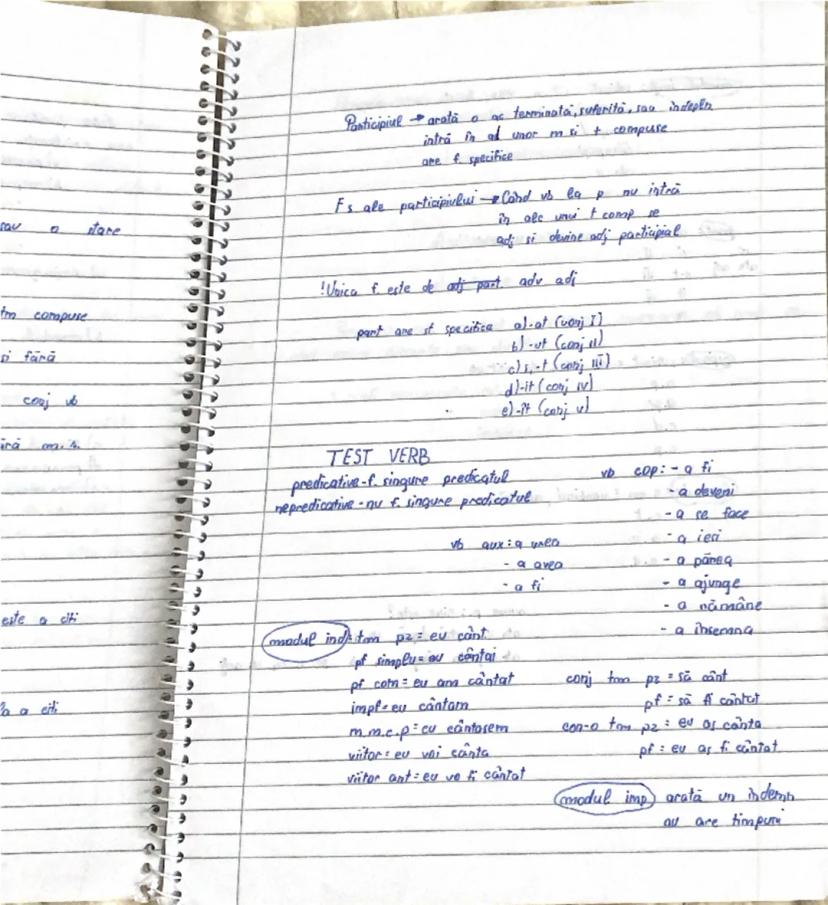 sau o stare
tm compuse
si fără
conj vb
este a citi
a citi
Participiul → arată o ac terminată, suferită, sau indepln
intră în al unor m si t compuse
are f. specifice
Fs ale participiului → Când vb la p nu intră
în alc unui t comp se
adj si devine adj participial
!Unica f. este de adj part adv adj
part are sf specifice a)-at (conj I)
b)-ut (conj II)
c) s, -t (conj III)
d)-it (conj IV)
e)-ît (conj V)
TEST VERB
predicative-f. singure predicatul
nepredicative-nu f. singure predicatul
vb aux: a vrea
- a avea
- a fi
vb cop: - a fi
- a deveni
- a se face
- a iesi
- a părea
- a ajunge
- a rămâne
- a însemna
modul ind: tm pz = eu cânt
pf simplu = eu cântai
pf com = eu am cântat
impf = eu cântam
m.m.c.p = eu cântasem
viitor = eu voi cânta
viitor ant = eu vo fi cântat
conj tm pz = să cânt
pf = să fi cântat
con-o tm pz = eu as cânta
pf = eu as fi cântat
modul imp arată un îndemn
au are timpuri